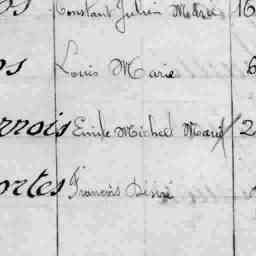 Constant Julien Marie 16
Louis Marie 6
rrois Emile Michel Marie 2
ortes François Désiré